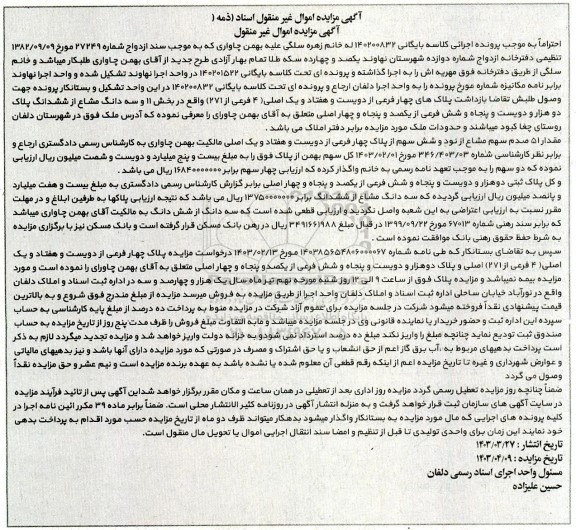 آگهی مزایده اموال غیر منقول اسناد (ذمه (
آگهی مزایده اموال غیر منقول
احتراماً به موجب پرونده اجرائی کلاسه بایگانی ۱۴۰۲۰۰۸۳۲ له خانم زهره سلگی علیه بهمن چاوری که به موجب سند ازدواج شماره ۲۷۲۴۹ مورخ ۱۳۸۲/۰۹/۰۹
تنظیمی دفترخانه ازدواج شماره دوازده شهرستان نهاوند یکصد و چهارده سکه طلا تمام بهار آزادی طرح جدید از آقای بهمن چاوری طلبکار میباشد و خانم
سلگی از طریق دفترخانه فوق مهریه اش را به اجرا گذاشته و پرونده ای تحت کلاسه بایگانی ۱۴۰۲۰۱۵۲۲ در واحد اجرا نهاوند تشکیل شده و واحد اجرا نهاوند
برابر نامه مکانیزه شماره مورخ پرونده را به واحد اجرا دلفان ارجاع و پرونده ای تحت کلاسه بایگانی ۱۴۰۲۰۰۸۳۲ در این واحد تشکیل و بستانکار پرونده جهت
وصول طلبش تقاضا بازداشت پلاک های چهار فرعی از دویست و هفتاد و یک اصلی (۴ فرعی از ۲۷۱) واقع در بخش ۱۱ و سه دانگ مشاع از ششدانگ پلاک
دو هزار و دویست و پنجاه و شش فرعی از یکصد و پنجاه و چهار اصلی متعلق به آقای بهمن چاورای را معرفی نموده که آدرس ملک فوق در شهرستان دلفان
روستای چغا کبود میباشند و حدودات ملک مورد مزایده برابر دفتر املاک می باشد .
مقدار ۵۱ صدم سهم مشاع از نود و شش سهم از پلاک چهار فرعی از دویست و هفتاد و یک اصلی مالکیت بهمن چاوری به کارشناس رسمی دادگستری ارجاع و
برابر نظر کارشناسی شماره ۳۴۶/۴۰۳/۰۳ مورخ ۱۴۰۳/۰۲/۰۱ کل سهم بهمن از پلاک فوق را به مبلغ بیست و پنج میلیارد و دویست و شصت میلیون ریال ارزیابی
نموده که دو سهم را به موجب تعهد نامه رسمی به خانم واگذار کرده که ارزیابی چهار سهم برابر ۱۶۸۴۰۰۰۰۰۰۰ ریال می باشد .
و کل پلاک ثبتی دوهزار و دویست و پنجاه و شش فرعی از یکصد و پنجاه و چهار اصلی برابر گزارش کارشناس رسمی دادگستری به مبلغ بیست و هفت میلیارد
و پانصد میلیون ریال ارزیابی گردیده که سه دانگ مشاع از ششدانگ برابر ۱۳۷۵۰۰۰۰۰۰۰ ریال می باشد که نتیجه ارزیابی پلاکها به طرفین ابلاغ و در مهلت
مقرر نسبت به ارزیابی اعتراضی به این شعبه واصل نگردید و ارزیابی قطعی شده است که سه دانگ از شش دانگ به مالکیت آقای بهمن چاوری میباشد
که برابر سند رهنی شماره ۶۷۰۱۳ مورخ ۱۳۹۹/۰۹/۲۲ در قبال مبلغ ۳۴۹۱۶۶۱۹۸۸ ریال در رهن بانک مسکن قرار گرفته است و بانک مسکن نیز با برگزاری مزایده
به شرط حفظ حقوق رهنی بانک موافقت نموده است .
سپس به تقاضای بستانکار که طی نامه شماره ۱۴۰۳۸۵۶۵۴۸۰۶۰۰۰۰۶۷ مورخ ۱۴۰۳/۰۲/۱۳ درخواست مزایده پلاک چهار فرعی از دویست و هفتاد و یک
اصلی (۴ فرعی از ۲۷۱) اصلی و پلاک دوهزار و دویست و پنجاه و شش فرعی از یکصدو پنجاه و چهار اصلی متعلق به آقای بهمن چاورای را نموده است و مورد
مزایده بیمه نمیباشد و مزایده پلاک فوق از ساعت ۹ الی ۱۲ روز شنبه مورخه نهم تیرماه سال یک هزار و چهارصد و سه در اداره ثبت اسناد و املاک دلفان
واقع در نورآباد خیابان ساحلی اداره ثبت اسناد و املاک دلفان واحد اجرا از طریق مزایده به فروش میرسد مزایده از مبلغ مندرج فوق شروع و به بالاترین
قیمت پیشنهادی نقداً فروخته میشود شرکت در جلسه مزایده برای عموم آزاد شرکت در مزایده منوط به پرداخت ده درصد از مبلغ پایه کارشناسی به حساب
سپرده این اداره ثبت و حضور خریدار یا نماینده قانونی وی در جلسه مزایده میباشد و مابه التفاوت مبلغ فروش را ظرف مدت پنج روز از تاریخ مزایده به حساب
صندوق ثبت تودیع نماید چنانچه مبلغ را واریز نکند مبلغ ده درصد استرداد نمی شود به خزانه دولت واریز خواهد شد و مزایده تجدید میگردد لازم به ذکر
است پرداخت بدهیهای مربوط به ،آب برق گاز اعم از حق انشعاب و یا حق اشتراک و مصرف در صورتی که مورد مزایده دارای آنها باشد و نیز بدهیهای مالیاتی
و عوارض شهرداری و غیره تا تاریخ مزایده اعم از اینکه رقم قطعی آن معلوم شده یا نشده باشد به عهده برنده مزایده است و نیم عشر و حق مزایده نقداً
وصول می گردد
ضمناً چنانچه روز مزایده تعطیل رسمی گردد مزایده روز اداری بعد از تعطیلی در همان ساعت و مکان مقرر برگزار خواهد شداین آگهی پس از تائید فرآیند مزایده
در سایت آگهی های سازمان ثبت قرار خواهد گرفت و به منزله انتشار آگهی در روزنامه کثیر الانتشار محلی است. ضمناً برابر ماده ۳۹ مکرر ائین نامه اجرا در
کلیه پرونده های اجرایی که مال مورد مزایده به بستانکار واگذار میشود بدهکار میتواند ظرف دو ماه از تاریخ مزایده حسب مورد اقدام به پرداخت بدهی
خود نمایند این زمان برای واحدی تولیدی تا قبل از تنظیم و امضا سند انتقال اجرایی اموال یا تحویل مال منقول است.
تاریخ انتشار : ۱۴۰۳/۰۳/۲۷
تاریخ مزایده : ۱۴۰۳/۰۴/۰۹
مسئول واحد اجرای اسناد رسمی دلفان
حسین علیزاده